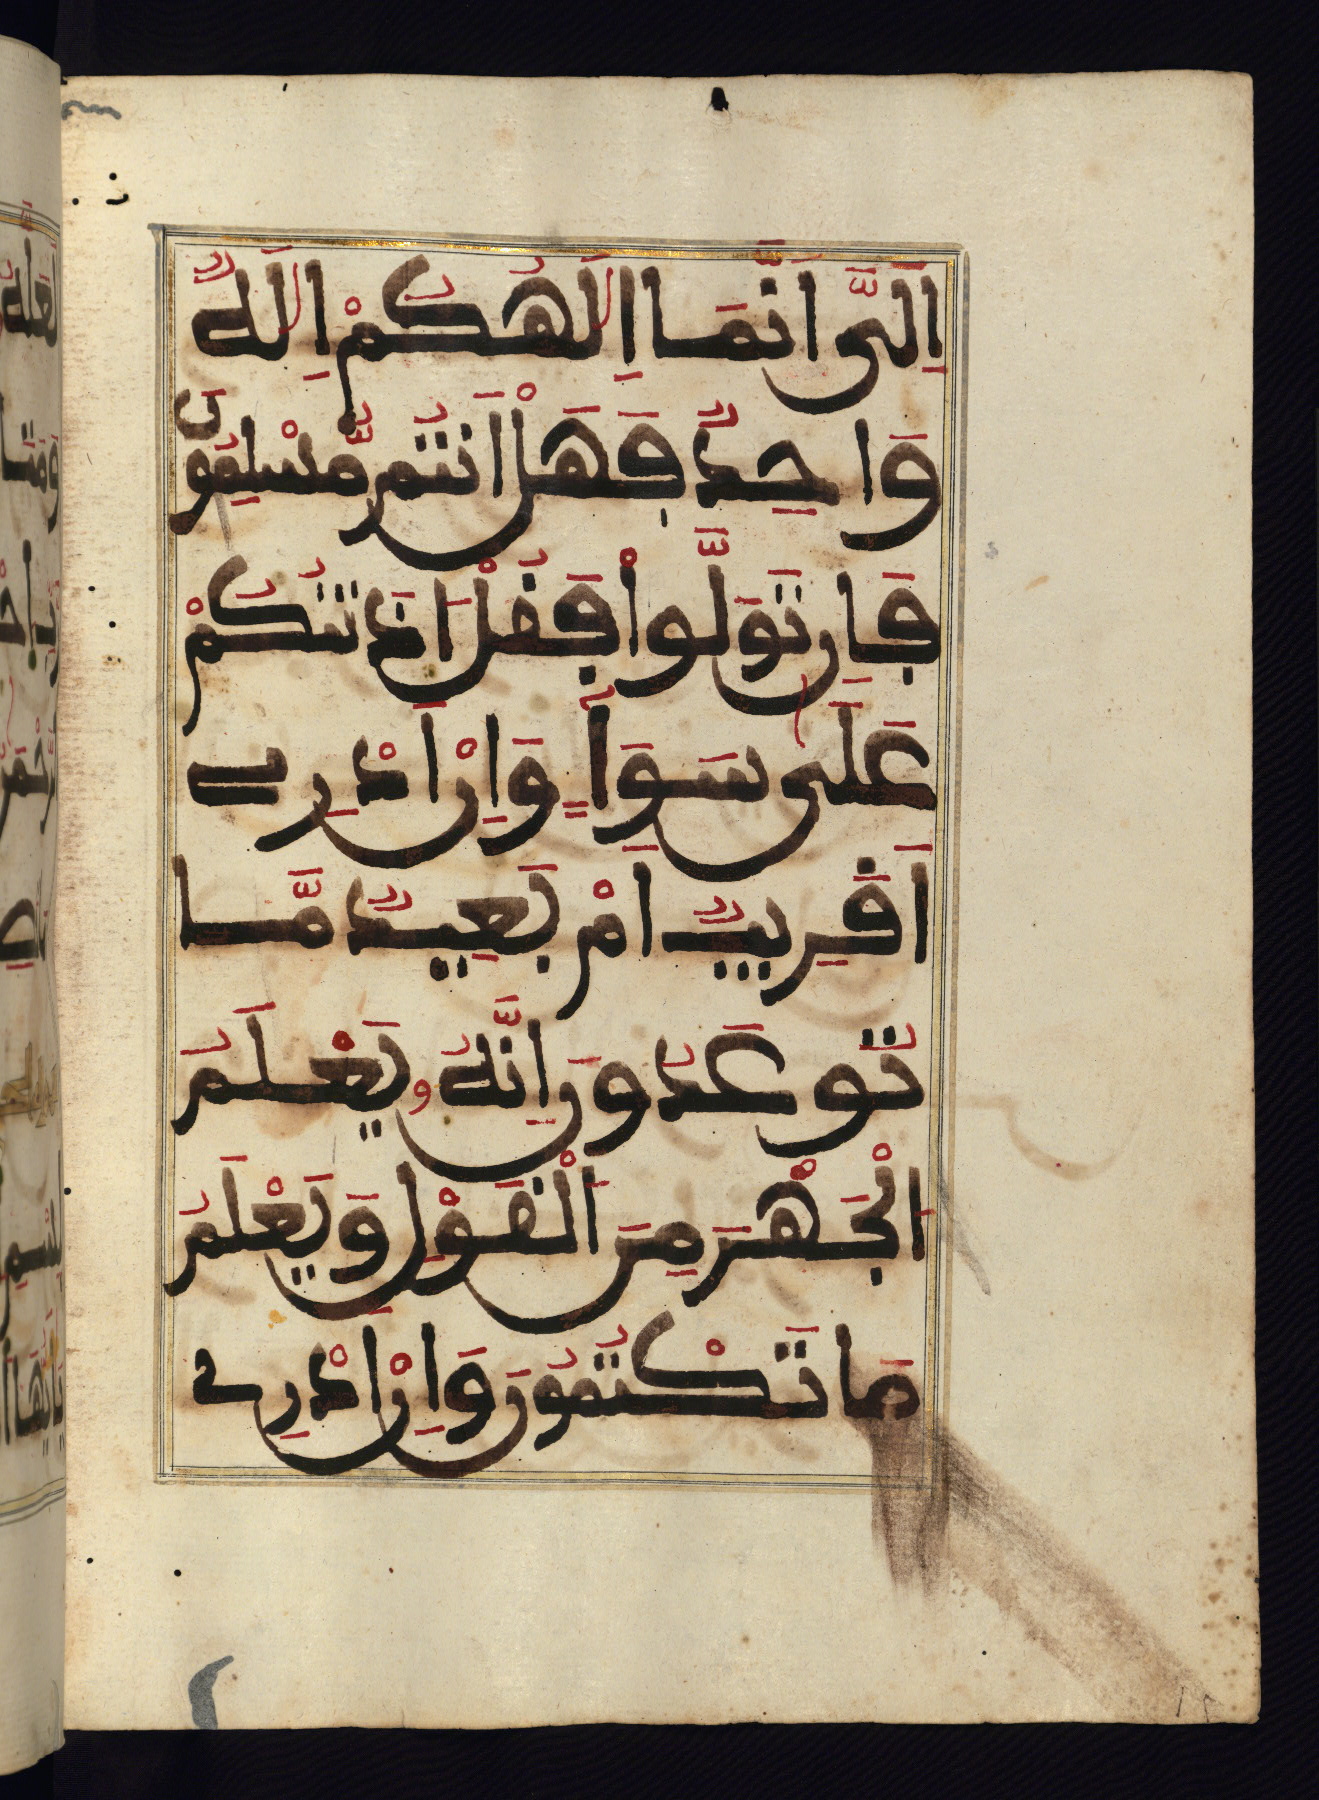 إِلَىَّ أَنَّمَا إِلَٰهُكُمْ إِلَٰهٌ
وَاحِدٌ فَهَلْ أَنتُم مُّسْلِمُونَ
فَإِن تَوَلَّوْاْ فَقُلْ ءَاذَنتُكُمْ
عَلَىٰ سَوَآءٍ وَإِنْ أَدْرِے
أَقَرِيبٌ أَمْ بَعِيدٌ مَّا
تُوعَدُونَ إِنَّهُۥ يَعْلَمُ
اَلْجَهْرَ مِنَ اَلْقَوْلِ وَيَعْلَمُ
مَا تَكْتُمُونَ وَإِنْ أَدْرِے